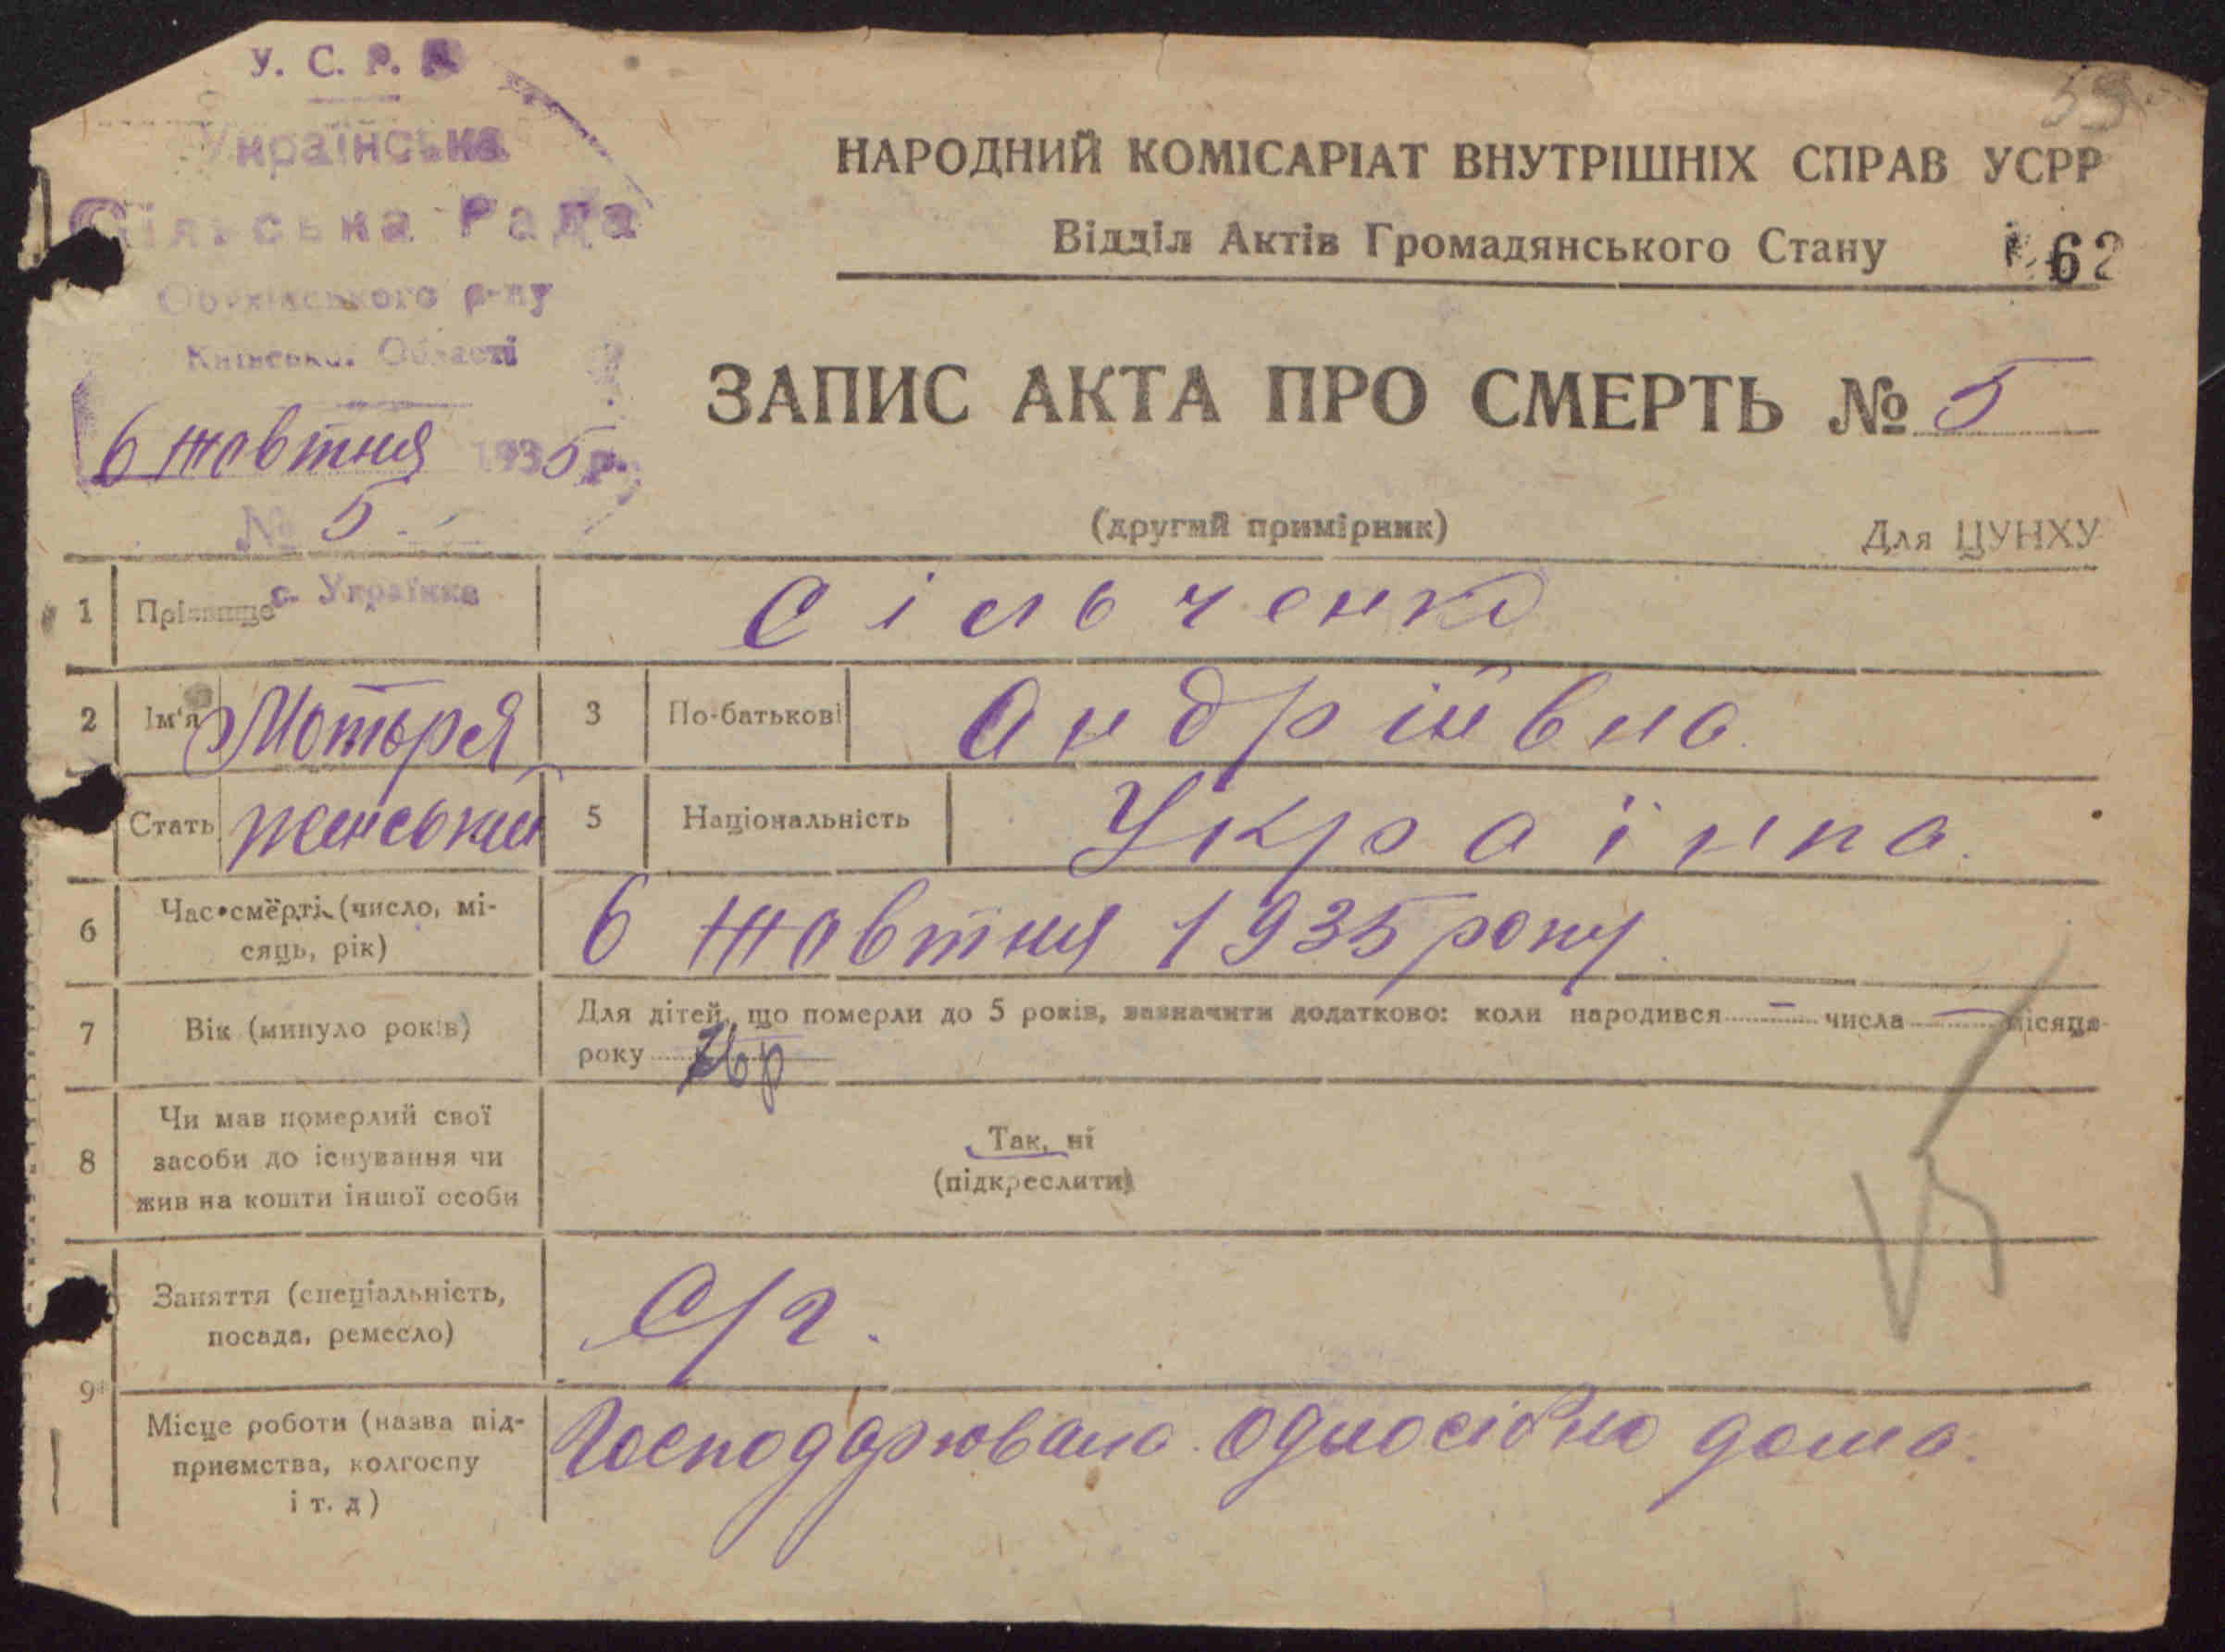 У. С. Р. Р.
Українська
Сільська Рада
Обухівського р-ну
Київської Області
6 жовтня 1935 р.
№ 5
с. Українка
59
НАРОДНИЙ КОМІСАРІАТ ВНУТРІШНІХ СПРАВ УСРР
Відділ Актів Громадянського Стану
62
ЗАПИС АКТА ПРО СМЕРТЬ № 5
(другий примірник)
Для ЦУНХУ
1 Прізвище Сільченко
2 Ім'я Моторя 3 По-батькові Андрійвна
Стать женський 5 Національність Українка
6 Час смерті (число, мі-
сяць, рік) 6 жовтня 1935 року
7 Вік (минуло років) Для дітей, що померли до 5 років, зазначити додатково: коли народився — числа — місяця
року 76 р
8 Чи мав померлий свої
засоби до існування чи
жив на кошти іншої особи
Так, ні
(підкреслити)
Заняття (спеціальність,
посада, ремесло) С/г.
9
Місце роботи (назва під-
приємства, колгоспу
і т. д) Господарювала одноосібно дома.